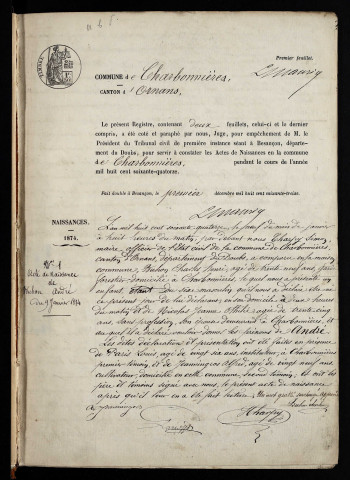 Premier feuillet.
COMMUNE de Charbonnières,
CANTON d'Ornans,
Le présent Registre, contenant deux feuillets, celui-ci et le dernier
compris, a été coté et paraphé par nous, Juge, pour empêchement de M.
le Président du Tribunal civil de première instance séant à Besançon, départe-
ment du Doubs, pour servir à constater les Actes de Naissances en la commune
de Charbonnières, pendant le cours de l'année
mil huit cent soixante-quatorze.
Fait double à Besançon, le premier décembre mil huit cent soixante-treize.
NAISSANCES.
1874.
N° 1
Acte de Naissance
de
André
du 9 Janvier 1874
L'an mil huit cent soixante quatorze, le neuf du mois de janvier
à huit heures du matin, par devant nous Charpy
maire, officier de l'état civil de la commune de Charbonnières,
canton d'Ornans, département du Doubs, a comparu en la maison
commune, Charles Henri, âgé de trente neuf ans, garde
forestier domicilié à Charbonnières, lequel nous a présenté un
enfant du sexe masculin, qu'il nous a déclaré être né
le présent jour de lui déclarant en son domicile à deux heures
du matin, et de Jeanne âgée de trente cinq
ans, sans profession, son épouse demeurant à Charbonnières, et
auquel il a déclaré vouloir donner les prénoms de André.
Les dites déclaration et présentation ont été faites en présence
de Louis, âgé de vingt six ans, instituteur, à Charbonnières
premier témoin, et de Jeanningros Alfred, âgé de vingt neuf ans,
cultivateur, domicilié en cette commune, second témoin; et ont les
père et témoins signé avec nous, le présent acte de naissance
après qu'il leur en a été fait lecture.
Jeanningros
Charpy